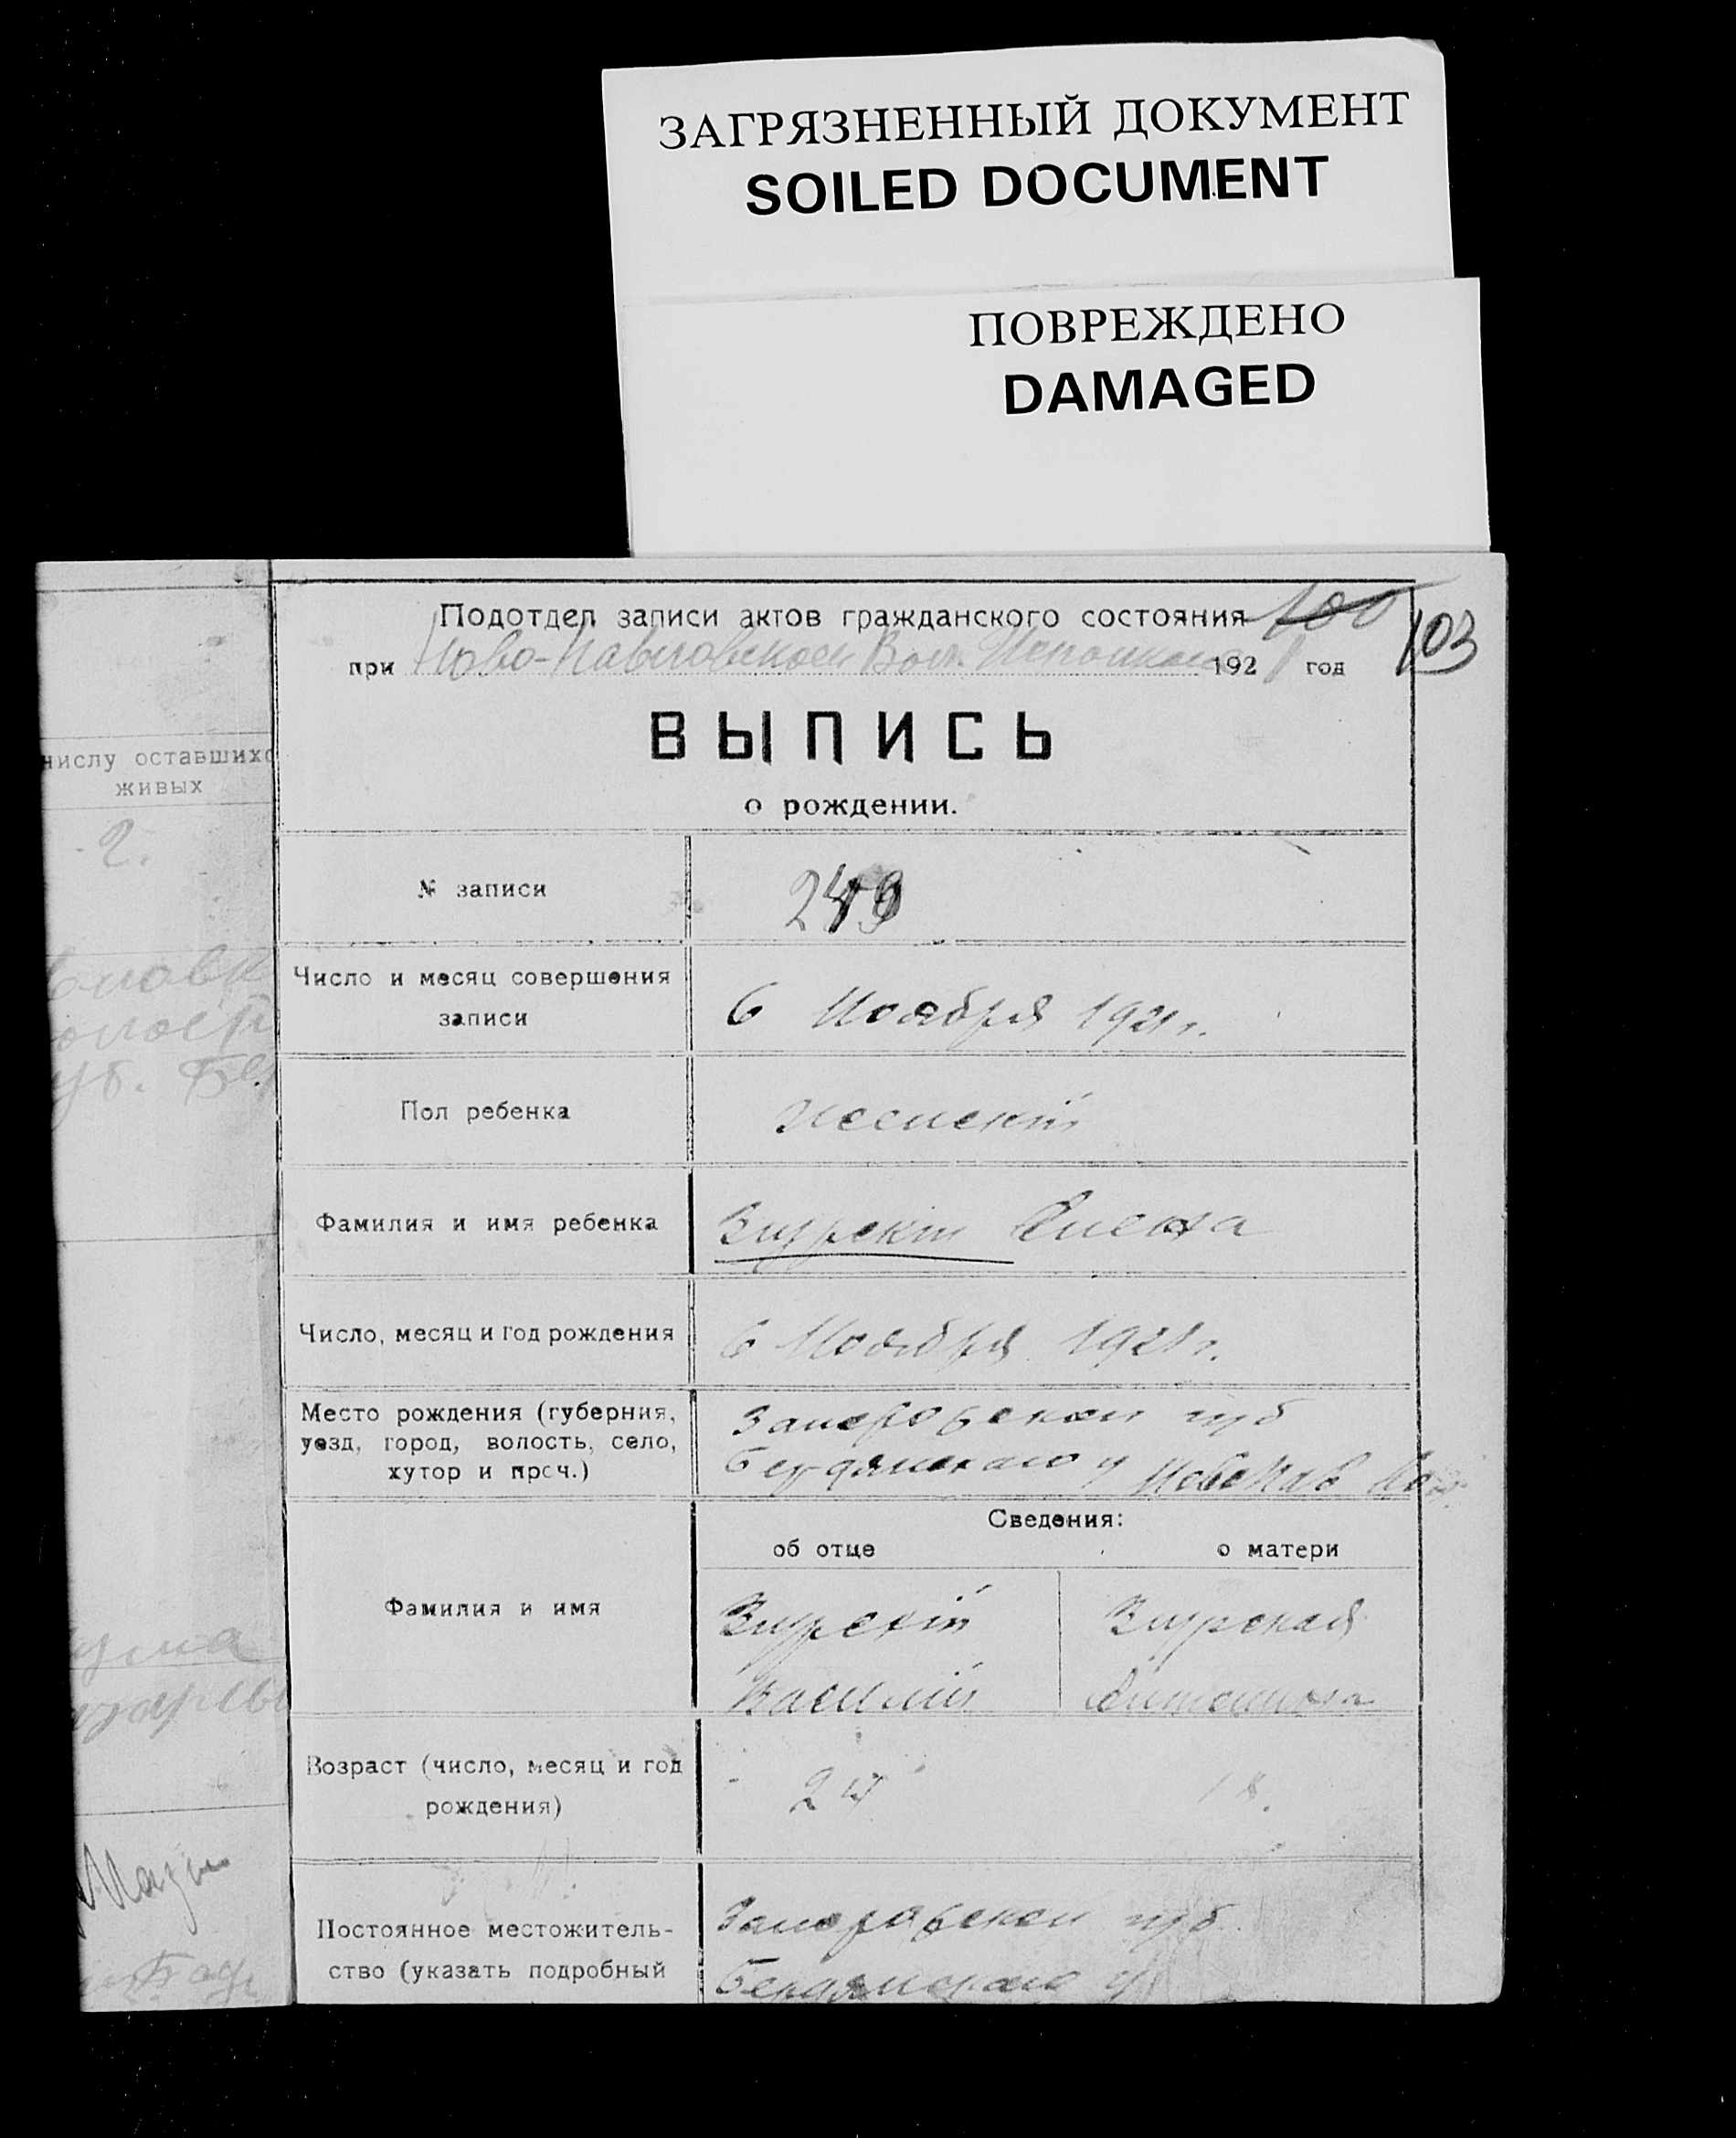 ЗАГРЯЗНЕННЫЙ ДОКУМЕНТ
SOILED DOCUMENT
ПОВРЕЖДЕНО
DAMAGED
Подотдел записи актов гражданского состояния 100
103
при Ново-Павловском Вол. Исполкоме 1921 год
числу оставшихс
живых
2.
ВЫПИСЬ
о рождении.
№ записи
Число и месяц совершения
записи
6 Ноября 1921 г.
Пол ребенка
Женскій
Фамилия и имя ребенка
Елена
Число, месяц и год рождения
6 Ноября 1921 г.
Место рождения (губерния,
уезд, город, волость, село,
хутор и проч.)
Запорожской губ
Бердянского у
Сведения:
об отце
о матери
Фамилия и имя
Василій
Антонина
Возраст (число, месяц и год
рождения)
18.
Постоянное местожитель-
ство (указать подробный
Запорожской губ.
Бердянского у